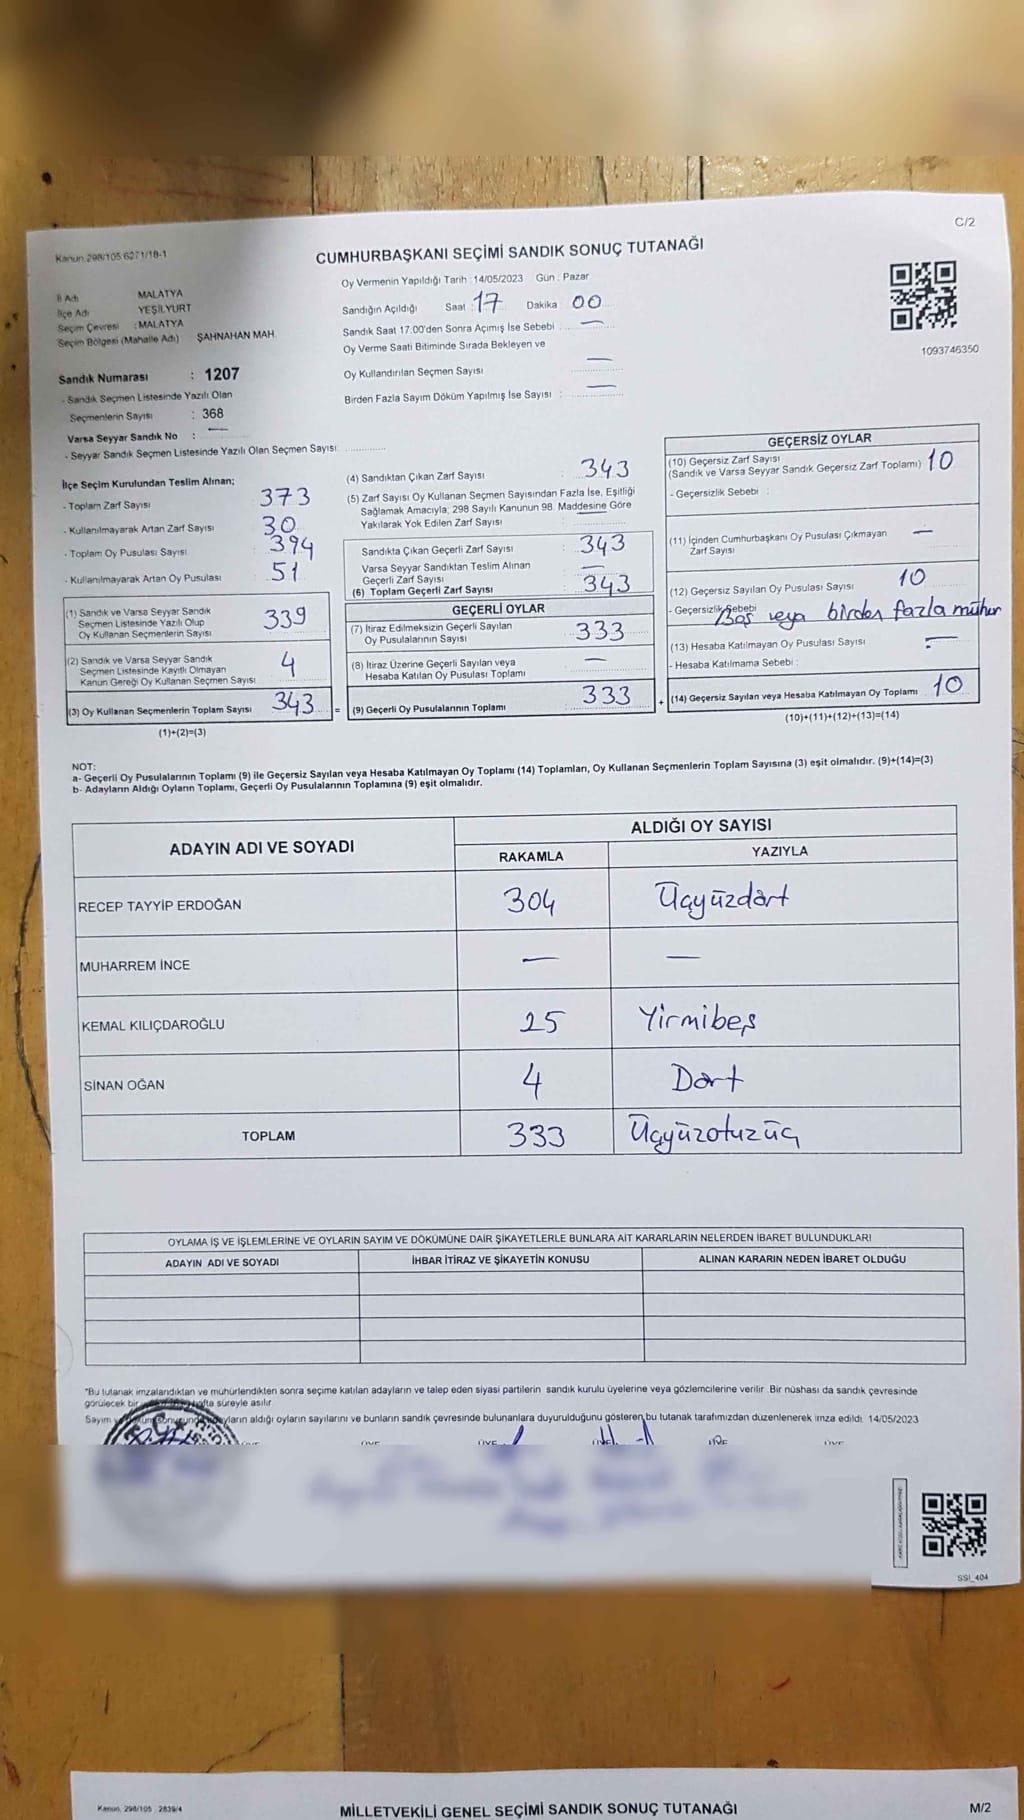 C/2
Kanun: 298/105 6271/18-1
CUMHURBAŞKANI SEÇİMİ SANDIK SONUÇ TUTANAĞI
Oy Vermenin Yapıldığı Tarih : 14/05/2023 Gün : Pazar
İl Adı MALATYA
İlçe Adı YEŞİLYURT
Seçim Çevresi : MALATYA
Seçim Bölgesi (Mahalle Adı) ŞAHNAHAN MAH.
Sandığın Açıldığı Saat : 17 Dakika 00
Sandık Saat 17.00'den Sonra Açımış İse Sebebi : —
Oy Verme Saati Bitiminde Sırada Bekleyen ve
Oy Kullandırılan Seçmen Sayısı —
Birden Fazla Sayım Döküm Yapılmış İse Sayısı : —
1093746350
Sandık Numarası : 1207
- Sandık Seçmen Listesinde Yazılı Olan
Seçmenlerin Sayısı : 368
Varsa Seyyar Sandık No : —
- Seyyar Sandık Seçmen Listesinde Yazılı Olan Seçmen Sayısı:
İlçe Seçim Kurulundan Teslim Alınan;
- Toplam Zarf Sayısı 373
- Kullanılmayarak Artan Zarf Sayısı 30
- Toplam Oy Pusulası Sayısı 394
- Kullanılmayarak Artan Oy Pusulası 51
(1) Sandık ve Varsa Seyyar Sandık
Seçmen Listesinde Yazılı Olup
Oy Kullanan Seçmenlerin Sayısı 339
(2) Sandık ve Varsa Seyyar Sandık
Seçmen Listesinde Kayıtlı Olmayan
Kanun Gereği Oy Kullanan Seçmen Sayısı 4
(3) Oy Kullanan Seçmenlerin Toplam Sayısı 343 =
(1)+(2)=(3)
(4) Sandıktan Çıkan Zarf Sayısı : 343
(5) Zarf Sayısı Oy Kullanan Seçmen Sayısından Fazla İse, Eşitliği
Sağlamak Amacıyla; 298 Sayılı Kanunun 98. Maddesine Göre
Yakılarak Yok Edilen Zarf Sayısı : —
Sandıkta Çıkan Geçerli Zarf Sayısı : 343
Varsa Seyyar Sandıktan Teslim Alınan
Geçerli Zarf Sayısı —
(6) Toplam Geçerli Zarf Sayısı 343
GEÇERLİ OYLAR
(7) İtiraz Edilmeksizin Geçerli Sayılan
Oy Pusulalarının Sayısı 333
(8) İtiraz Üzerine Geçerli Sayılan veya
Hesaba Katılan Oy Pusulası Toplamı —
(9) Geçerli Oy Pusulalarının Toplamı 333 +
GEÇERSİZ OYLAR
(10) Geçersiz Zarf Sayısı
(Sandık ve Varsa Seyyar Sandık Geçersiz Zarf Toplamı) 10
- Geçersizlik Sebebi :
(11) İçinden Cumhurbaşkanı Oy Pusulası Çıkmayan
Zarf Sayısı —
(12) Geçersiz Sayılan Oy Pusulası Sayısı 10
- Geçersizlik Sebebi Boş veya birden fazla mühür
(13) Hesaba Katılmayan Oy Pusulası Sayısı —
- Hesaba Katılmama Sebebi :
(14) Geçersiz Sayılan veya Hesaba Katılmayan Oy Toplamı 10
(10)+(11)+(12)+(13)=(14)
NOT:
a- Geçerli Oy Pusulalarının Toplamı (9) ile Geçersiz Sayılan veya Hesaba Katılmayan Oy Toplamı (14) Toplamları, Oy Kullanan Seçmenlerin Toplam Sayısına (3) eşit olmalıdır. (9)+(14)=(3)
b- Adayların Aldığı Oyların Toplamı, Geçerli Oy Pusulalarının Toplamına (9) eşit olmalıdır.
ADAYIN ADI VE SOYADI ALDIĞI OY SAYISI
RAKAMLA YAZIYLA
RECEP TAYYİP ERDOĞAN 304 Üçyüzdört
MUHARREM İNCE — —
KEMAL KILIÇDAROĞLU 25 Yirmibeş
SİNAN OĞAN 4 Dört
TOPLAM 333 Üçyüzotuzüç
OYLAMA İŞ VE İŞLEMLERİNE VE OYLARIN SAYIM VE DÖKÜMÜNE DAİR ŞİKAYETLERLE BUNLARA AİT KARARLARIN NELERDEN İBARET BULUNDUKLARI
ADAYIN ADI VE SOYADI İHBAR İTİRAZ VE ŞİKAYETİN KONUSU ALINAN KARARIN NEDEN İBARET OLDUĞU
*Bu tutanak imzalandıktan ve mühürlendikten sonra seçime katılan adayların ve talep eden siyasi partilerin sandık kurulu üyelerine veya gözlemcilerine verilir. Bir nüshası da sandık çevresinde
görülecek bir hafta süreyle asılır.
Sayım ve adayların aldığı oyların sayılarını ve bunların sandık çevresinde bulunanlara duyurulduğunu gösteren bu tutanak tarafımızdan düzenlenerek imza edildi. 14/05/2023
ÜYE ÜYE ÜYE ÜYE ÜYE
SSI_404
Kanun: 298/105 : 2839/4
MİLLETVEKİLİ GENEL SEÇİMİ SANDIK SONUÇ TUTANAĞI
M/2